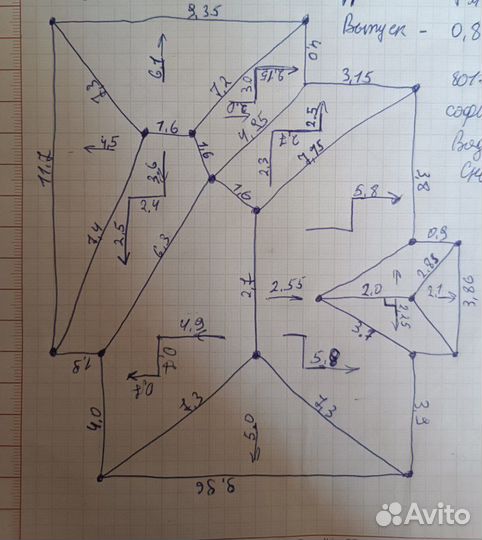 9.35
Выпуск - 0,8
4.0
6,1
7,2
2.15
3.0
3,15
7.3
1,6
4.85
2.5
2.7
1,6
4,5
3,6
2.3
7,75
2.4
1,6
5.8
3,8
11.7
2.5
7,4
6.3
0,9
2,85
2,7
2.55
2.0
2.1
3,86
2.15
3.7
4.9
1.8
0.7
5.8
0.7
4,0
7.3
7.3
5.0
3,3
9.86
Avito